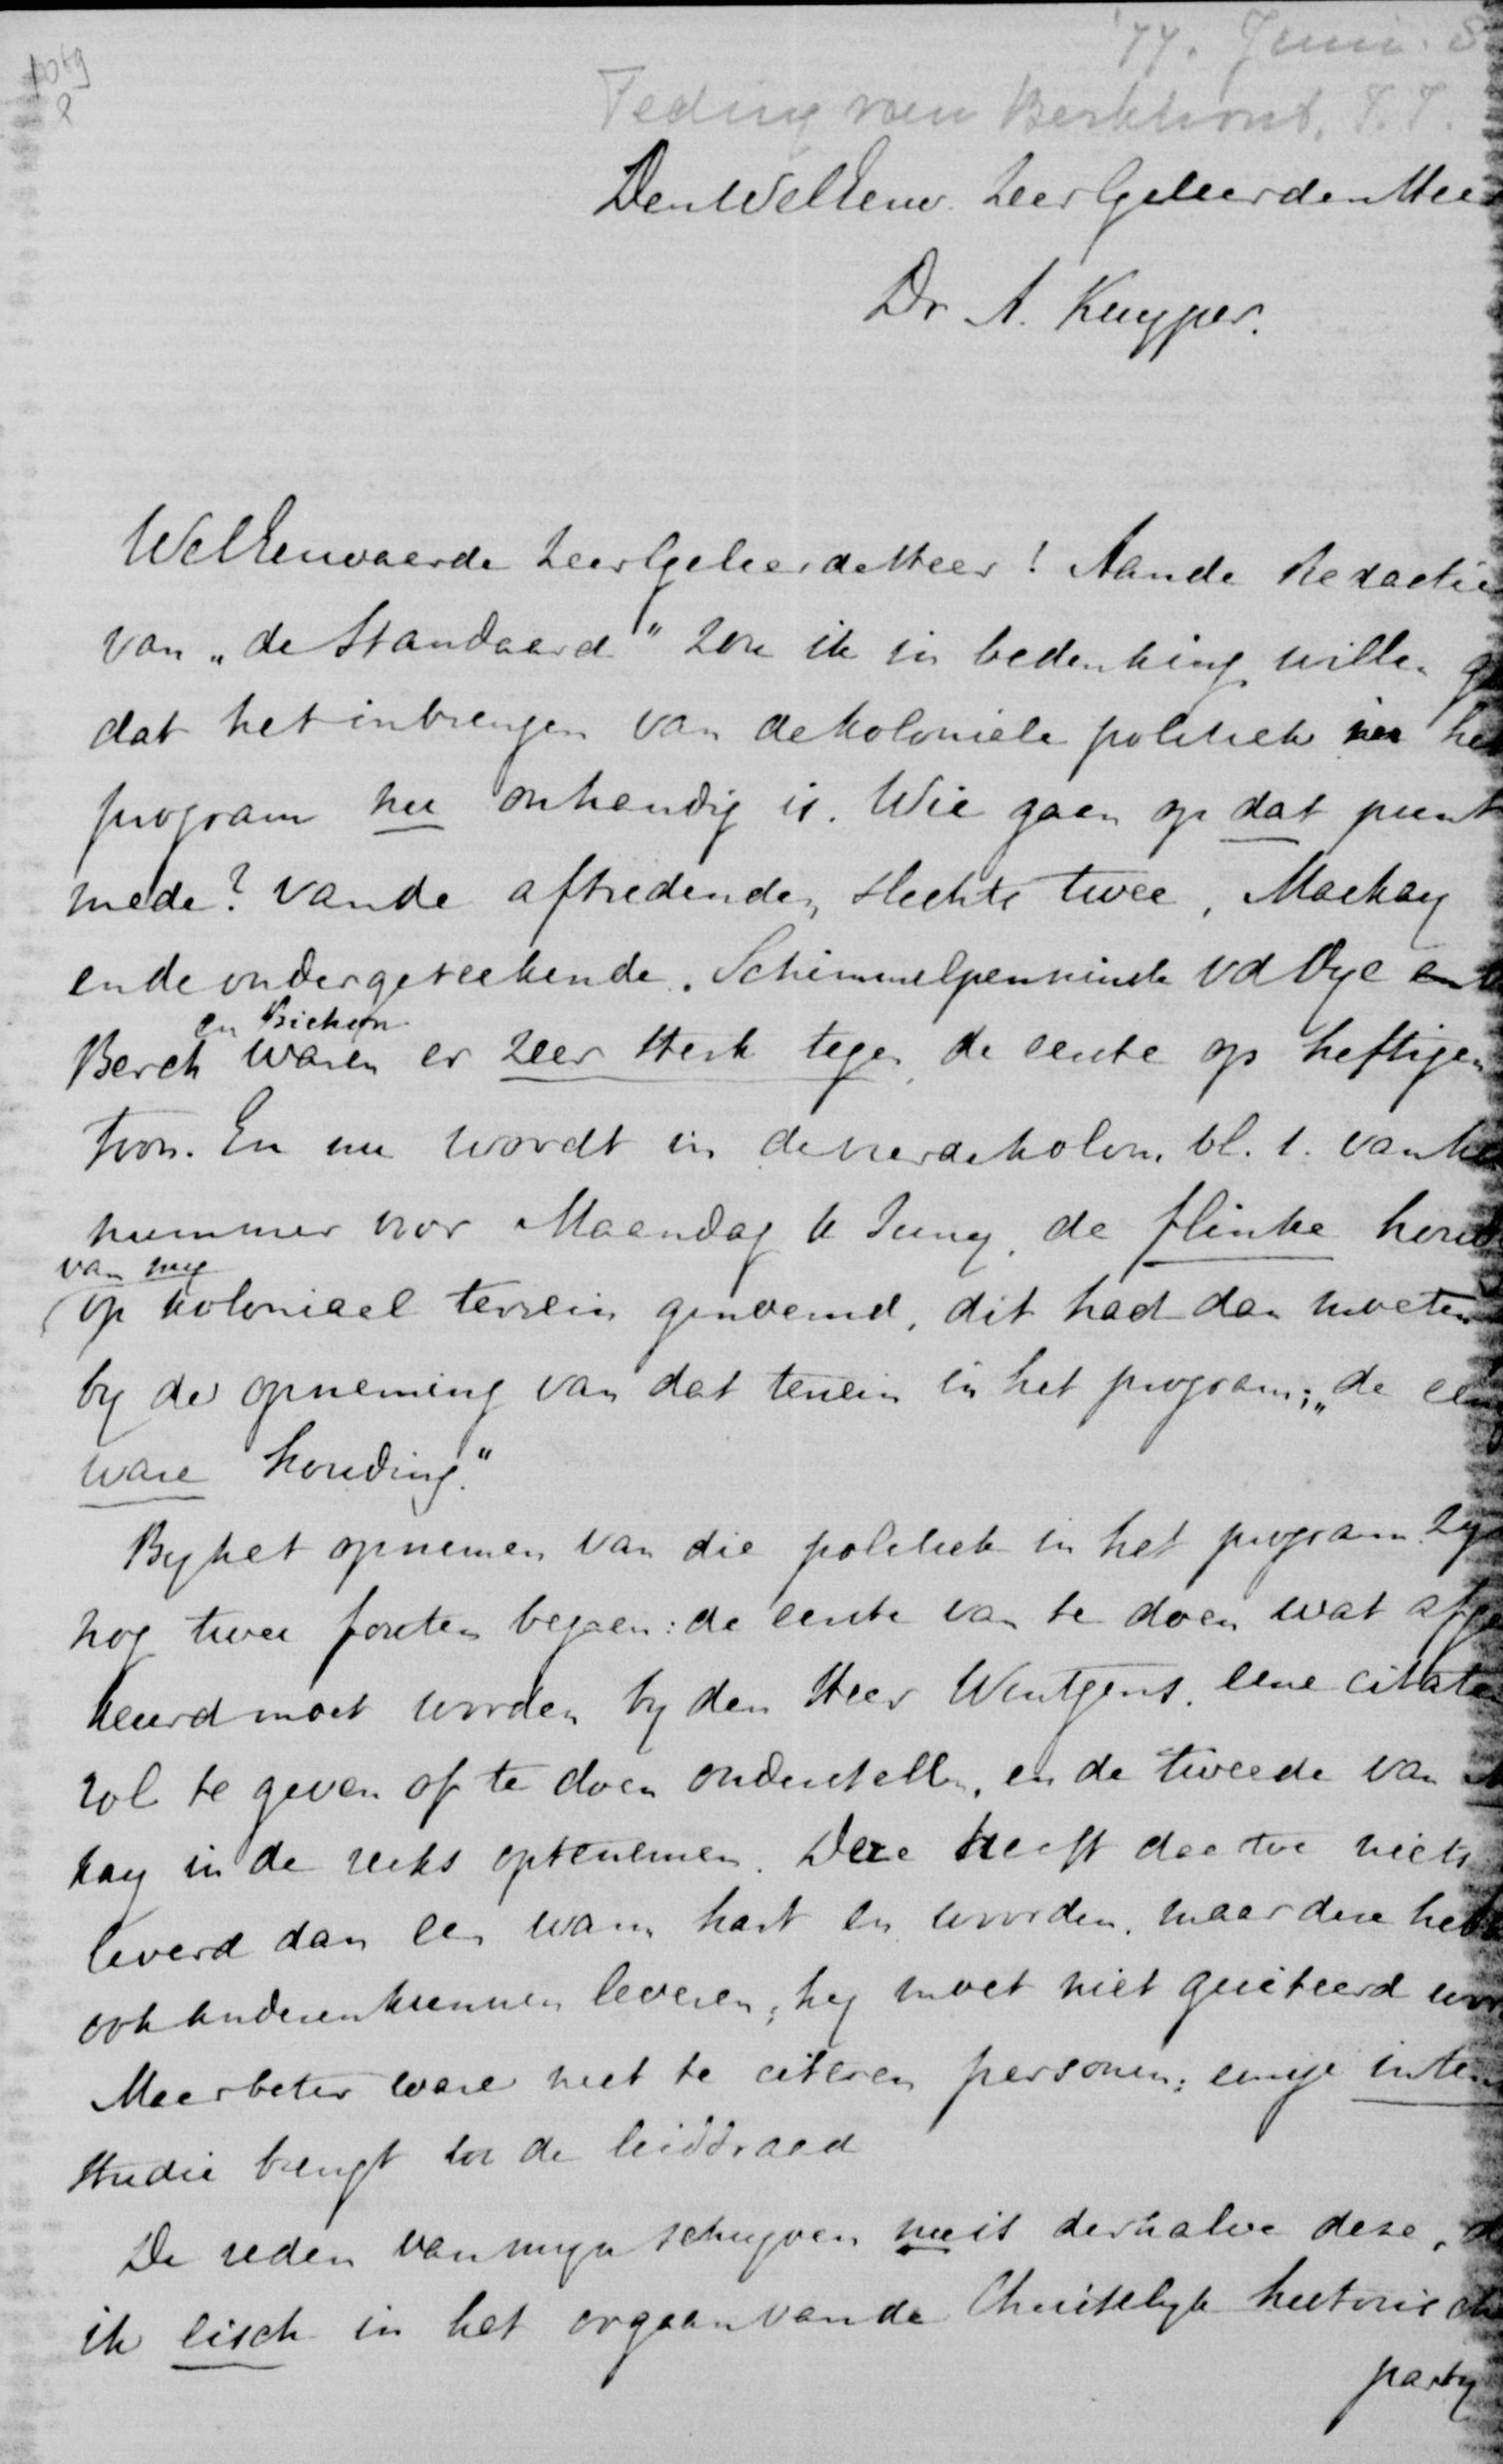 '77. Juni. 5
Teding van Berkhout, J.J.
Den WelEerw. ZeerGeleerden Heer
Dr A. Kuyper.
WelEerwaarde ZeerGeleerde Heer! Aan de Redactie
van „de Standaard" zou ik in bedenking willen
dat het inbrengen van de koloniale politiek in het
program nu onhandig is. Wie gaan op dat punt
mede? van de aftredenden slechts twee, Mackay
en de ondergeteekende. Schimmelpenninck vd Oye en
en Bichon
Berch waren er zeer sterk tegen, de eerste op heftigen
toon. En nu wordt in de vierde kolom, bl. 1. van het
nummer voor Maandag 4 Juny, de flinke houd
van my
op koloniaal terrein genoemd, dit had dan moeten
by de opneming van dat terrein in het program; „de
ware houding."
By het opnemen van die politiek in het program zyn
nog twee fouten begaan: de eerste van te doen wat afge
keurd moet worden by den Heer Wintgens, eene citaten
rol te geven of te doen onderstellen, en de tweede van
kay in de reeks optenemen. Deze heeft daartoe niets
leverd dan een warm hart en woorden, maar deze
ook anderen kunnen leveren; hy moet niet geciteerd
Maar beter ware niet te citeren personen; eenige
studie brengt tot de leiddraad
De reden van myn schryven nu is derhalve deze,
ik eisch in het orgaan van de Christelyk historische
party